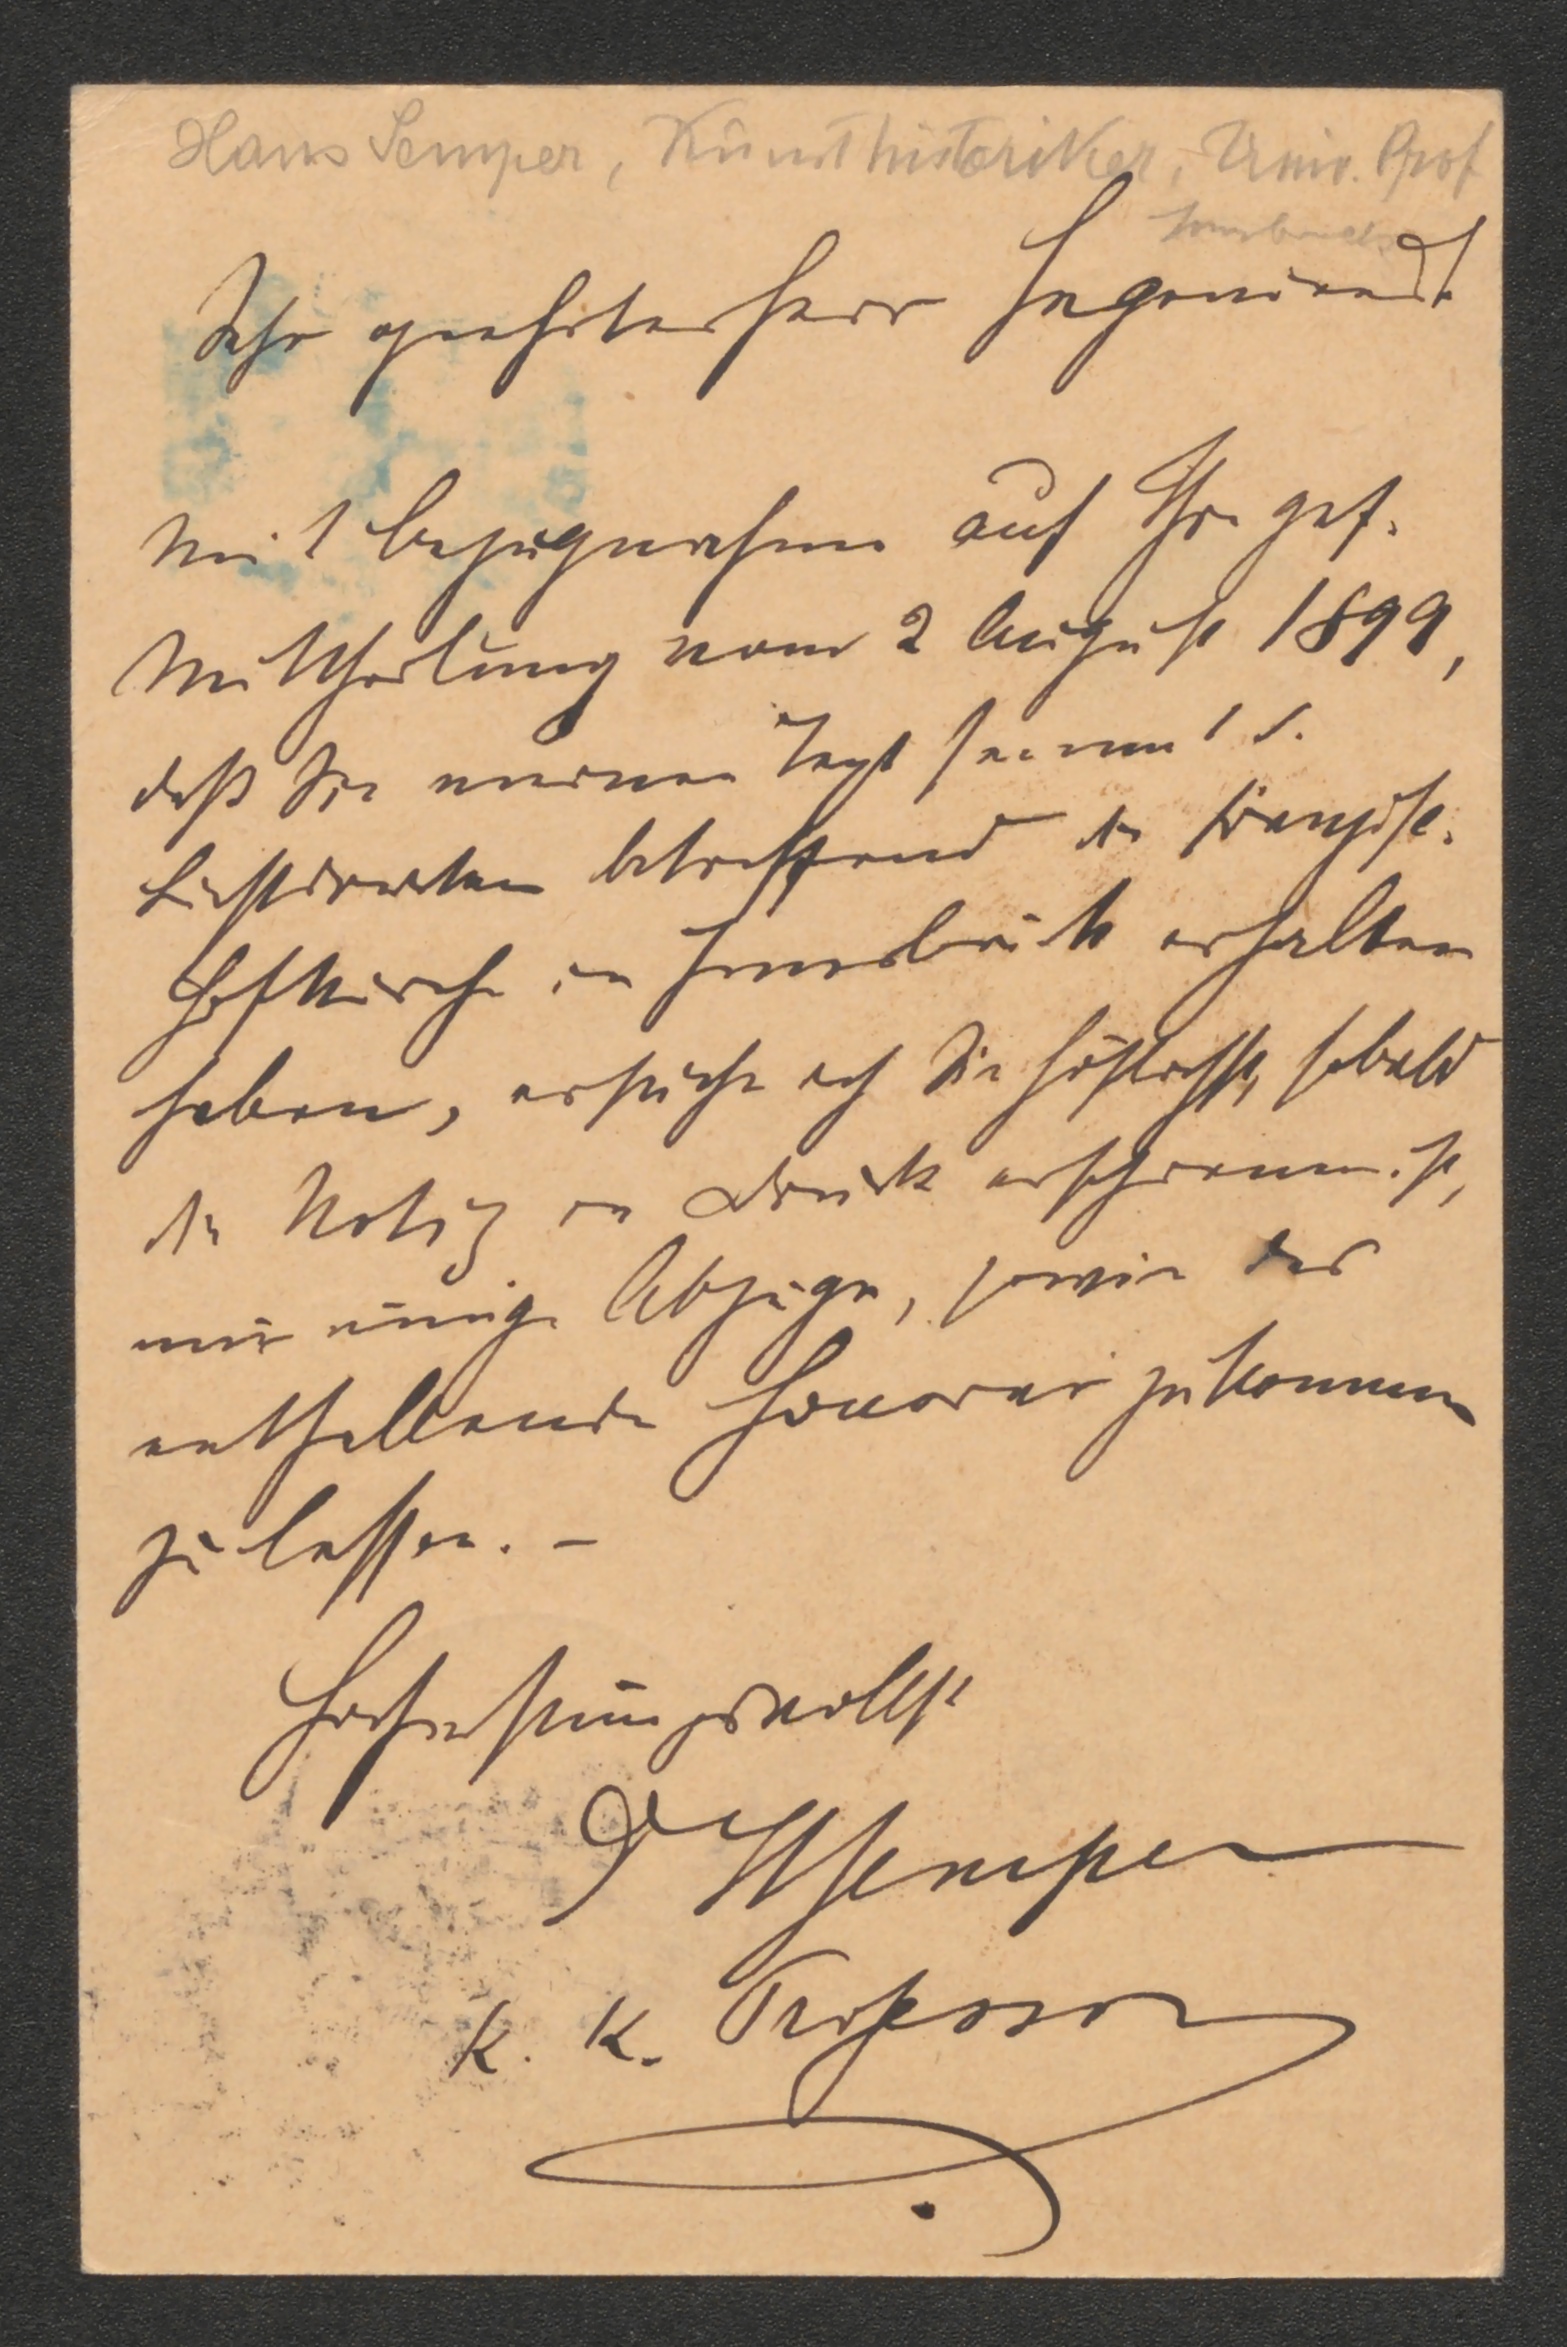 Hans Semper, Kunsthistoriker, Univ. Prof
Innsbruck
Sehr geehrter Herr Ingenieur!
Mit Bezugnahme auf Ihre gef.
Mittheilung vom 2 August 1899,
daß Sie meinen Text sammt d.
Lichtdrucken betreffend die
Hofkirche in Innsbruck erhalten
haben, ersuche ich Sie höflichst, sobald
die Notiz in Druck erschienen ist,
mir einige Abzüge, sowie das
Honorar zukommen
zu lassen. –
Hochachtungsvollst
Dr HSemper
K. K. Professor